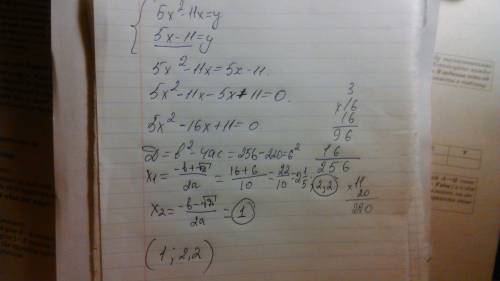 5x²-11x=y
5x-11=y
5x²-11x=5x-11
5x²-11x-5x+11=0
5x²-16x+11=0
D=b²-4ac=256-220=6²
x₁=(-b+√D)/2a=(16+6)/10=22/10=2 1/5=2,2
x₂=(-b-√D)/2a=1
(1;2,2)
3
x16
16
96
16
256
x11
20
220